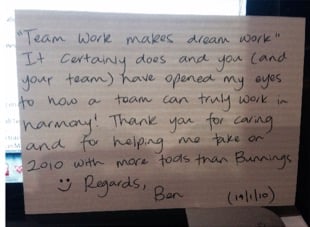 "Team Work makes dream work"
It certainly does and you (and
your team) have opened my eyes
to how a team can truly work in
harmony! Thank you for caring
and for helping me take on
2010 with more tools than Bunnings
Regards,
Ben (19/1/10)